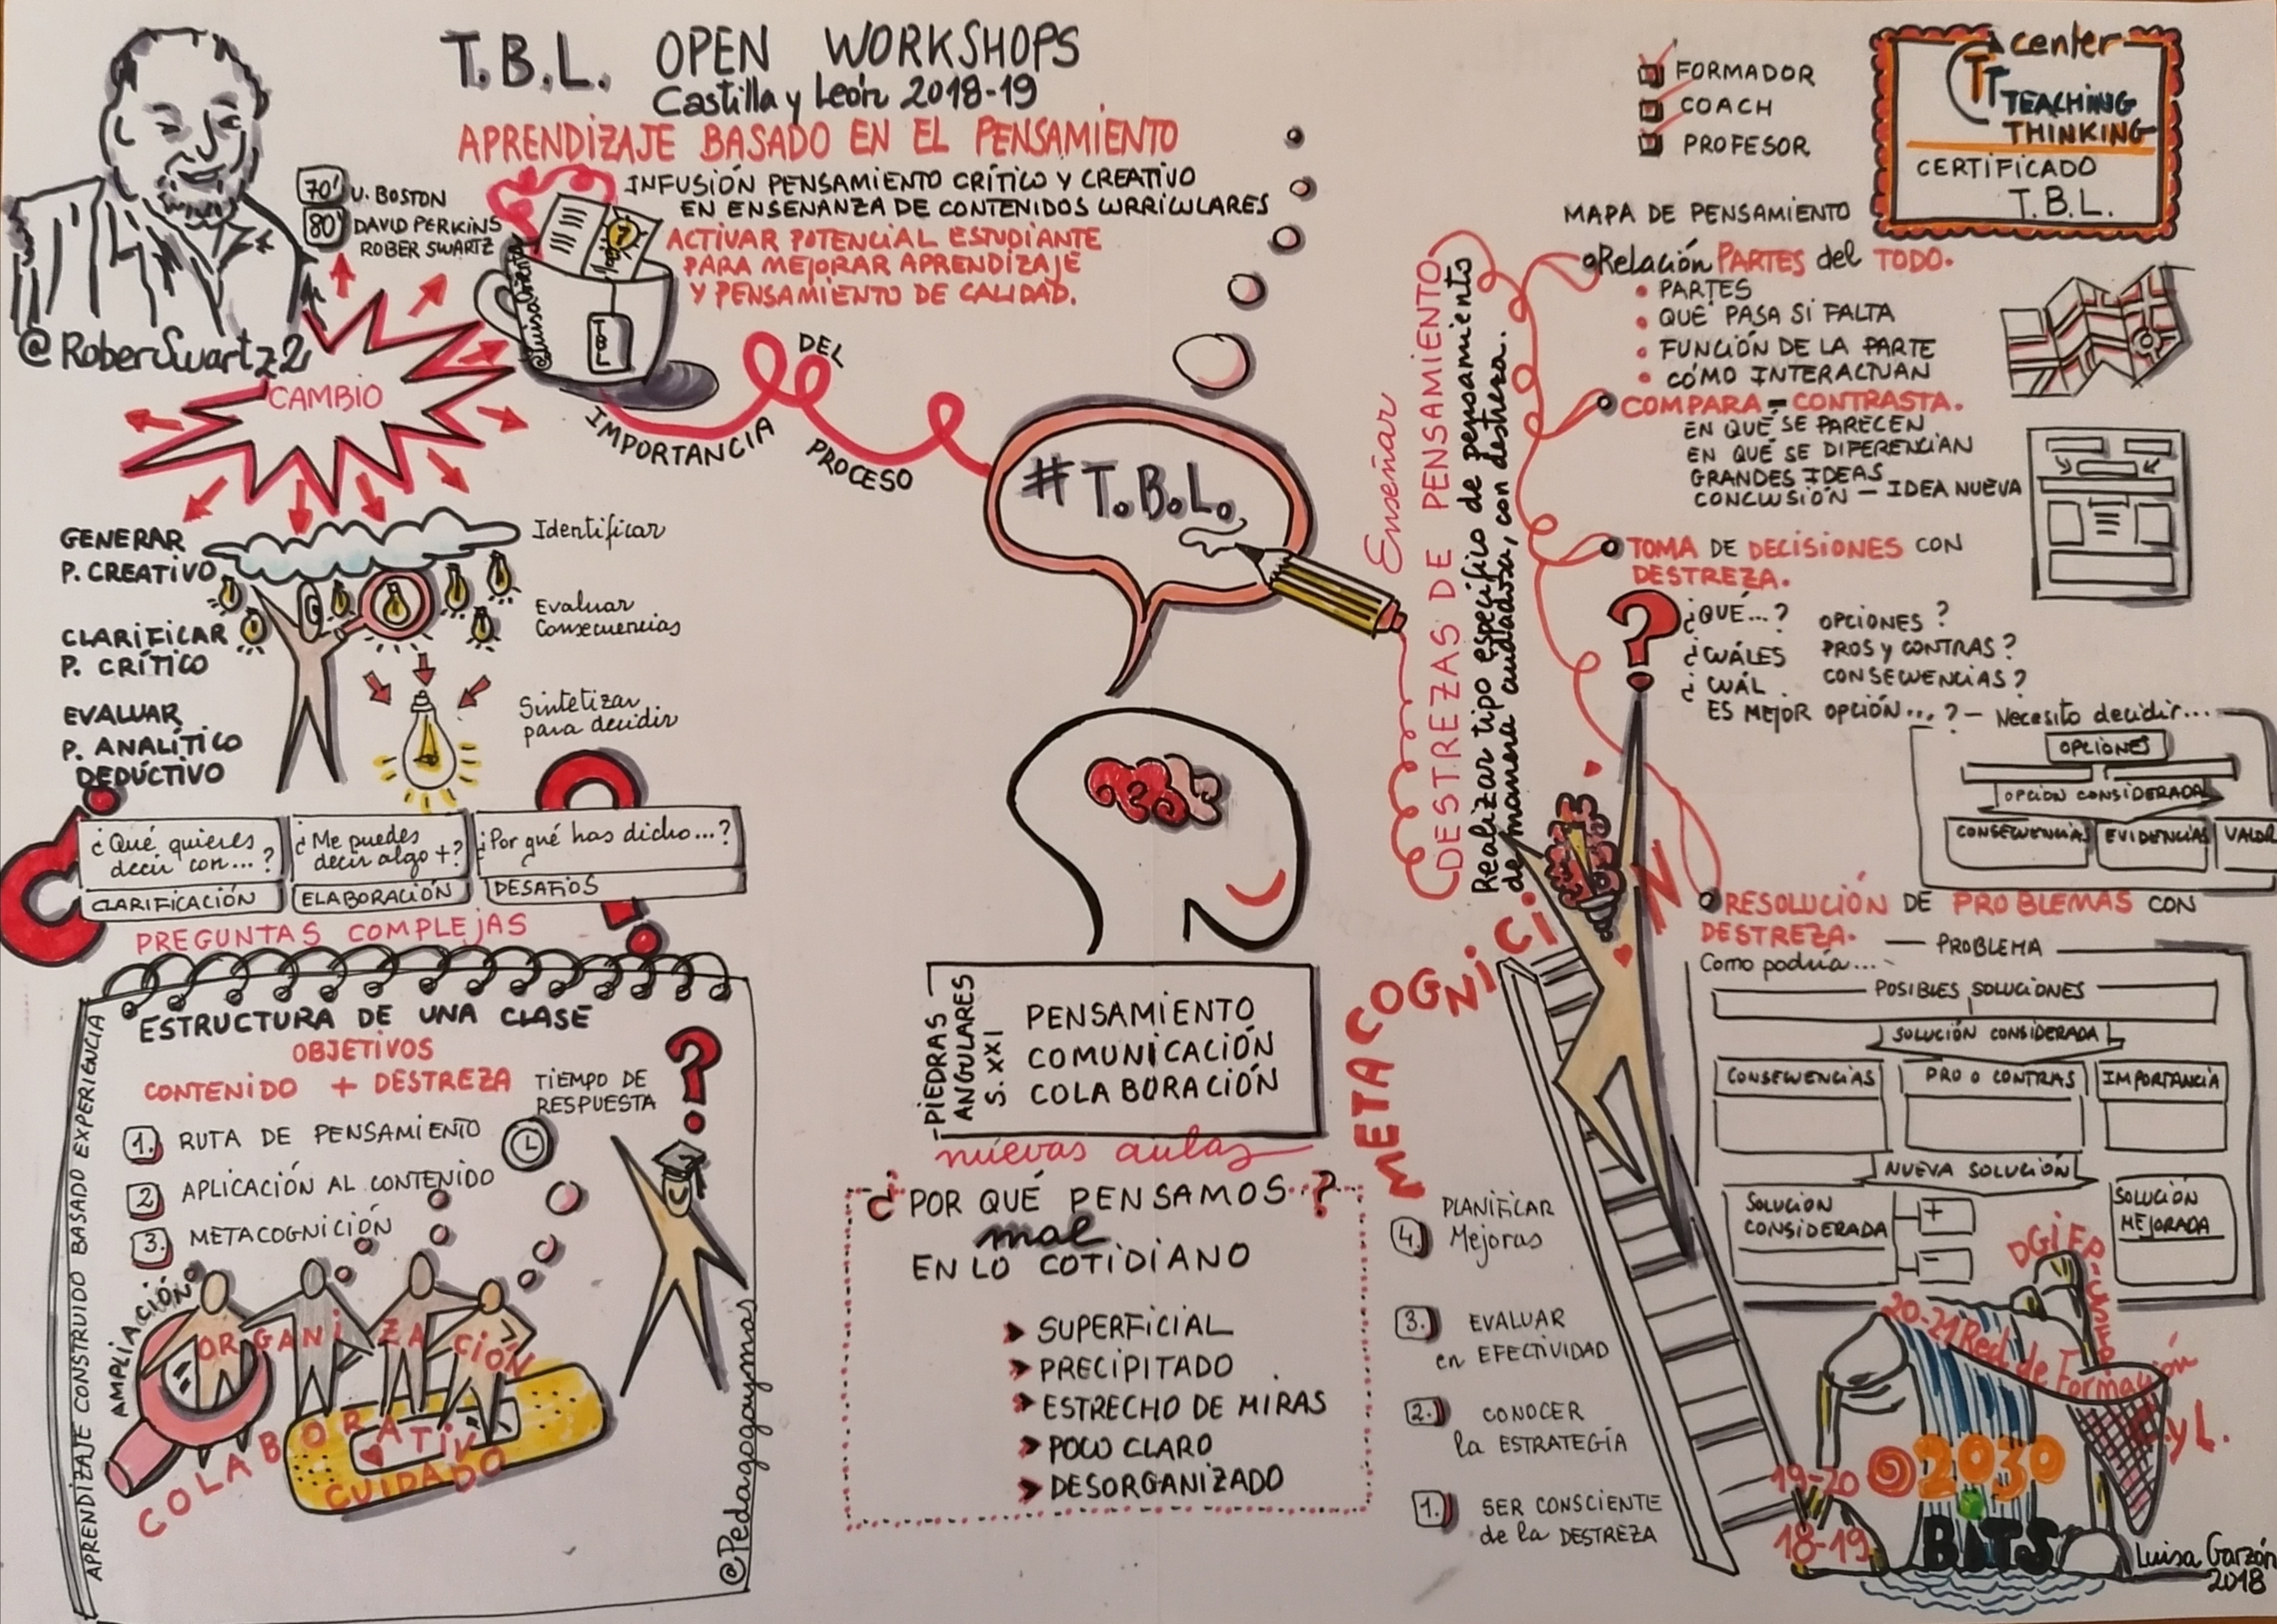 T.B.L. OPEN WORKSHOPS
Castilla y León 2018-19
APRENDIZAJE BASADO EN EL PENSAMIENTO
INFUSIÓN PENSAMIENTO CRÍTICO Y CREATIVO
EN ENSEÑANZA DE CONTENIDOS CURRICULARES
ACTIVAR POTENCIAL ESTUDIANTE
PARA MEJORAR APRENDIZAJE
Y PENSAMIENTO DE CALIDAD.
70' U. BOSTON
80' DAVID PERKINS
ROBER SWARTZ
@RoberSwartz2
@luisaorienta
TBL
CAMBIO
IMPORTANCIA
DEL
PROCESO
# T.B.L.
GENERAR
P. CREATIVO
CLARIFICAR
P. CRÍTICO
EVALUAR
P. ANALÍTICO
DEDUCTIVO
Identificar
Evaluar
Consecuencias
Sintetizar
para decidir
¿Qué quieres
decir con...?
CLARIFICACIÓN
¿Me puedes
decir algo +?
ELABORACIÓN
¿Por qué has dicho...?
DESAFÍOS
PREGUNTAS COMPLEJAS
APRENDIZAJE CONSTRUIDO BASADO EXPERIENCIA
ESTRUCTURA DE UNA CLASE
OBJETIVOS
CONTENIDO + DESTREZA
TIEMPO DE
RESPUESTA
1. RUTA DE PENSAMIENTO
2 APLICACIÓN AL CONTENIDO
3. METACOGNICIÓN
AMPLIACIÓN
ORGANIZACIÓN
COLABORATIVO
CUIDADO
@Pedagogoymas
PIEDRAS
ANGULARES
S. XXI
PENSAMIENTO
COMUNICACIÓN
COLABORACIÓN
nuevas aulas
¿POR QUÉ PENSAMOS?
mal
EN LO COTIDIANO
SUPERFICIAL
PRECIPITADO
ESTRECHO DE MIRAS
POCO CLARO
DESORGANIZADO
Enseñar
DESTREZAS DE PENSAMIENTO
Realizar tipo específico de pensamiento
de manera cuidadosa, con destreza.
METACOGNICIÓN
4. PLANIFICAR
Mejoras
3. EVALUAR
en EFECTIVIDAD
2. CONOCER
la ESTRATEGIA
1. SER CONSCIENTE
de la DESTREZA
FORMADOR
COACH
PROFESOR
center
TT TEACHING
THINKING
CERTIFICADO
T.B.L.
MAPA DE PENSAMIENTO
Relación PARTES del TODO.
PARTES
QUÉ PASA SI FALTA
FUNCIÓN DE LA PARTE
CÓMO INTERACTUAN
COMPARA - CONTRASTA.
EN QUÉ SE PARECEN
EN QUÉ SE DIFERENCIAN
GRANDES IDEAS
CONCLUSIÓN — IDEA NUEVA
TOMA DE DECISIONES CON
DESTREZA.
¿QUÉ...? OPCIONES?
¿CUÁLES PROS Y CONTRAS?
¿CUÁL. CONSECUENCIAS?
ES MEJOR OPCIÓN...? — Necesito decidir...
OPCIONES
OPCION CONSIDERADA
CONSECUENCIAS EVIDENCIAS VALOR
RESOLUCIÓN DE PROBLEMAS CON
DESTREZA.
Como podría...
PROBLEMA
POSIBLES SOLUCIONES
SOLUCIÓN CONSIDERADA
CONSECUENCIAS PRO O CONTRAS IMPORTANCIA
NUEVA SOLUCIÓN
SOLUCION
CONSIDERADA
+
-
SOLUCIÓN
MEJORADA
20-21 Red de Formación
CyL.
19-20
2030
18-19
BITS
Luisa Garzón
2018